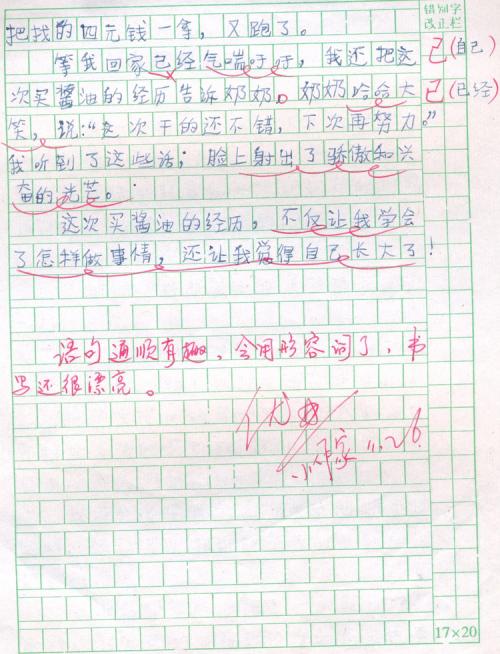 错别字
改正栏
把找的四元钱一拿，又跑了。
等我回家已经气喘吁吁，我还把这 己(自己)
次买酱油的经历告诉奶奶。奶奶哈哈大 已(已经)
笑，说：“这次干的还不错，下次再努力。”
我听到了这些话；脸上射出了骄傲和兴
奋的光芒。
这次买酱油的经历，不仅让我学会
了怎样做事情，还让我觉得自己长大了！
语句通顺有趣，会用形容词了，书
写还很漂亮。
优
11.26
17×20